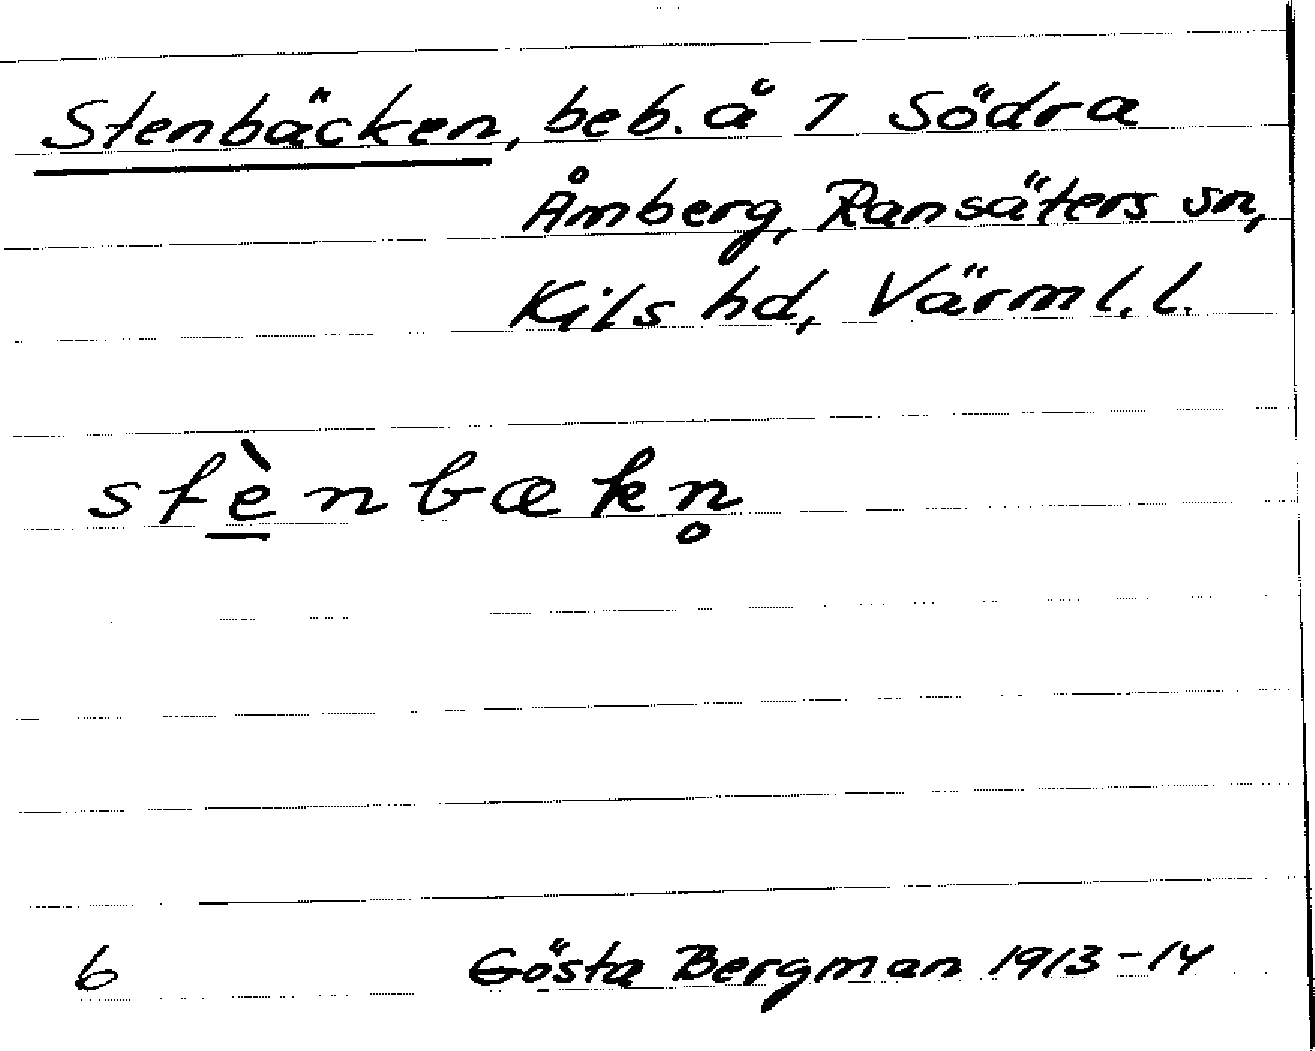 Stenbäcken, beb. å 7 Södra
Åmberg, Ransäters sn,
Kils hd, Värml. l.
stè̱nbækn̥
6 Gösta Bergman 1913-14